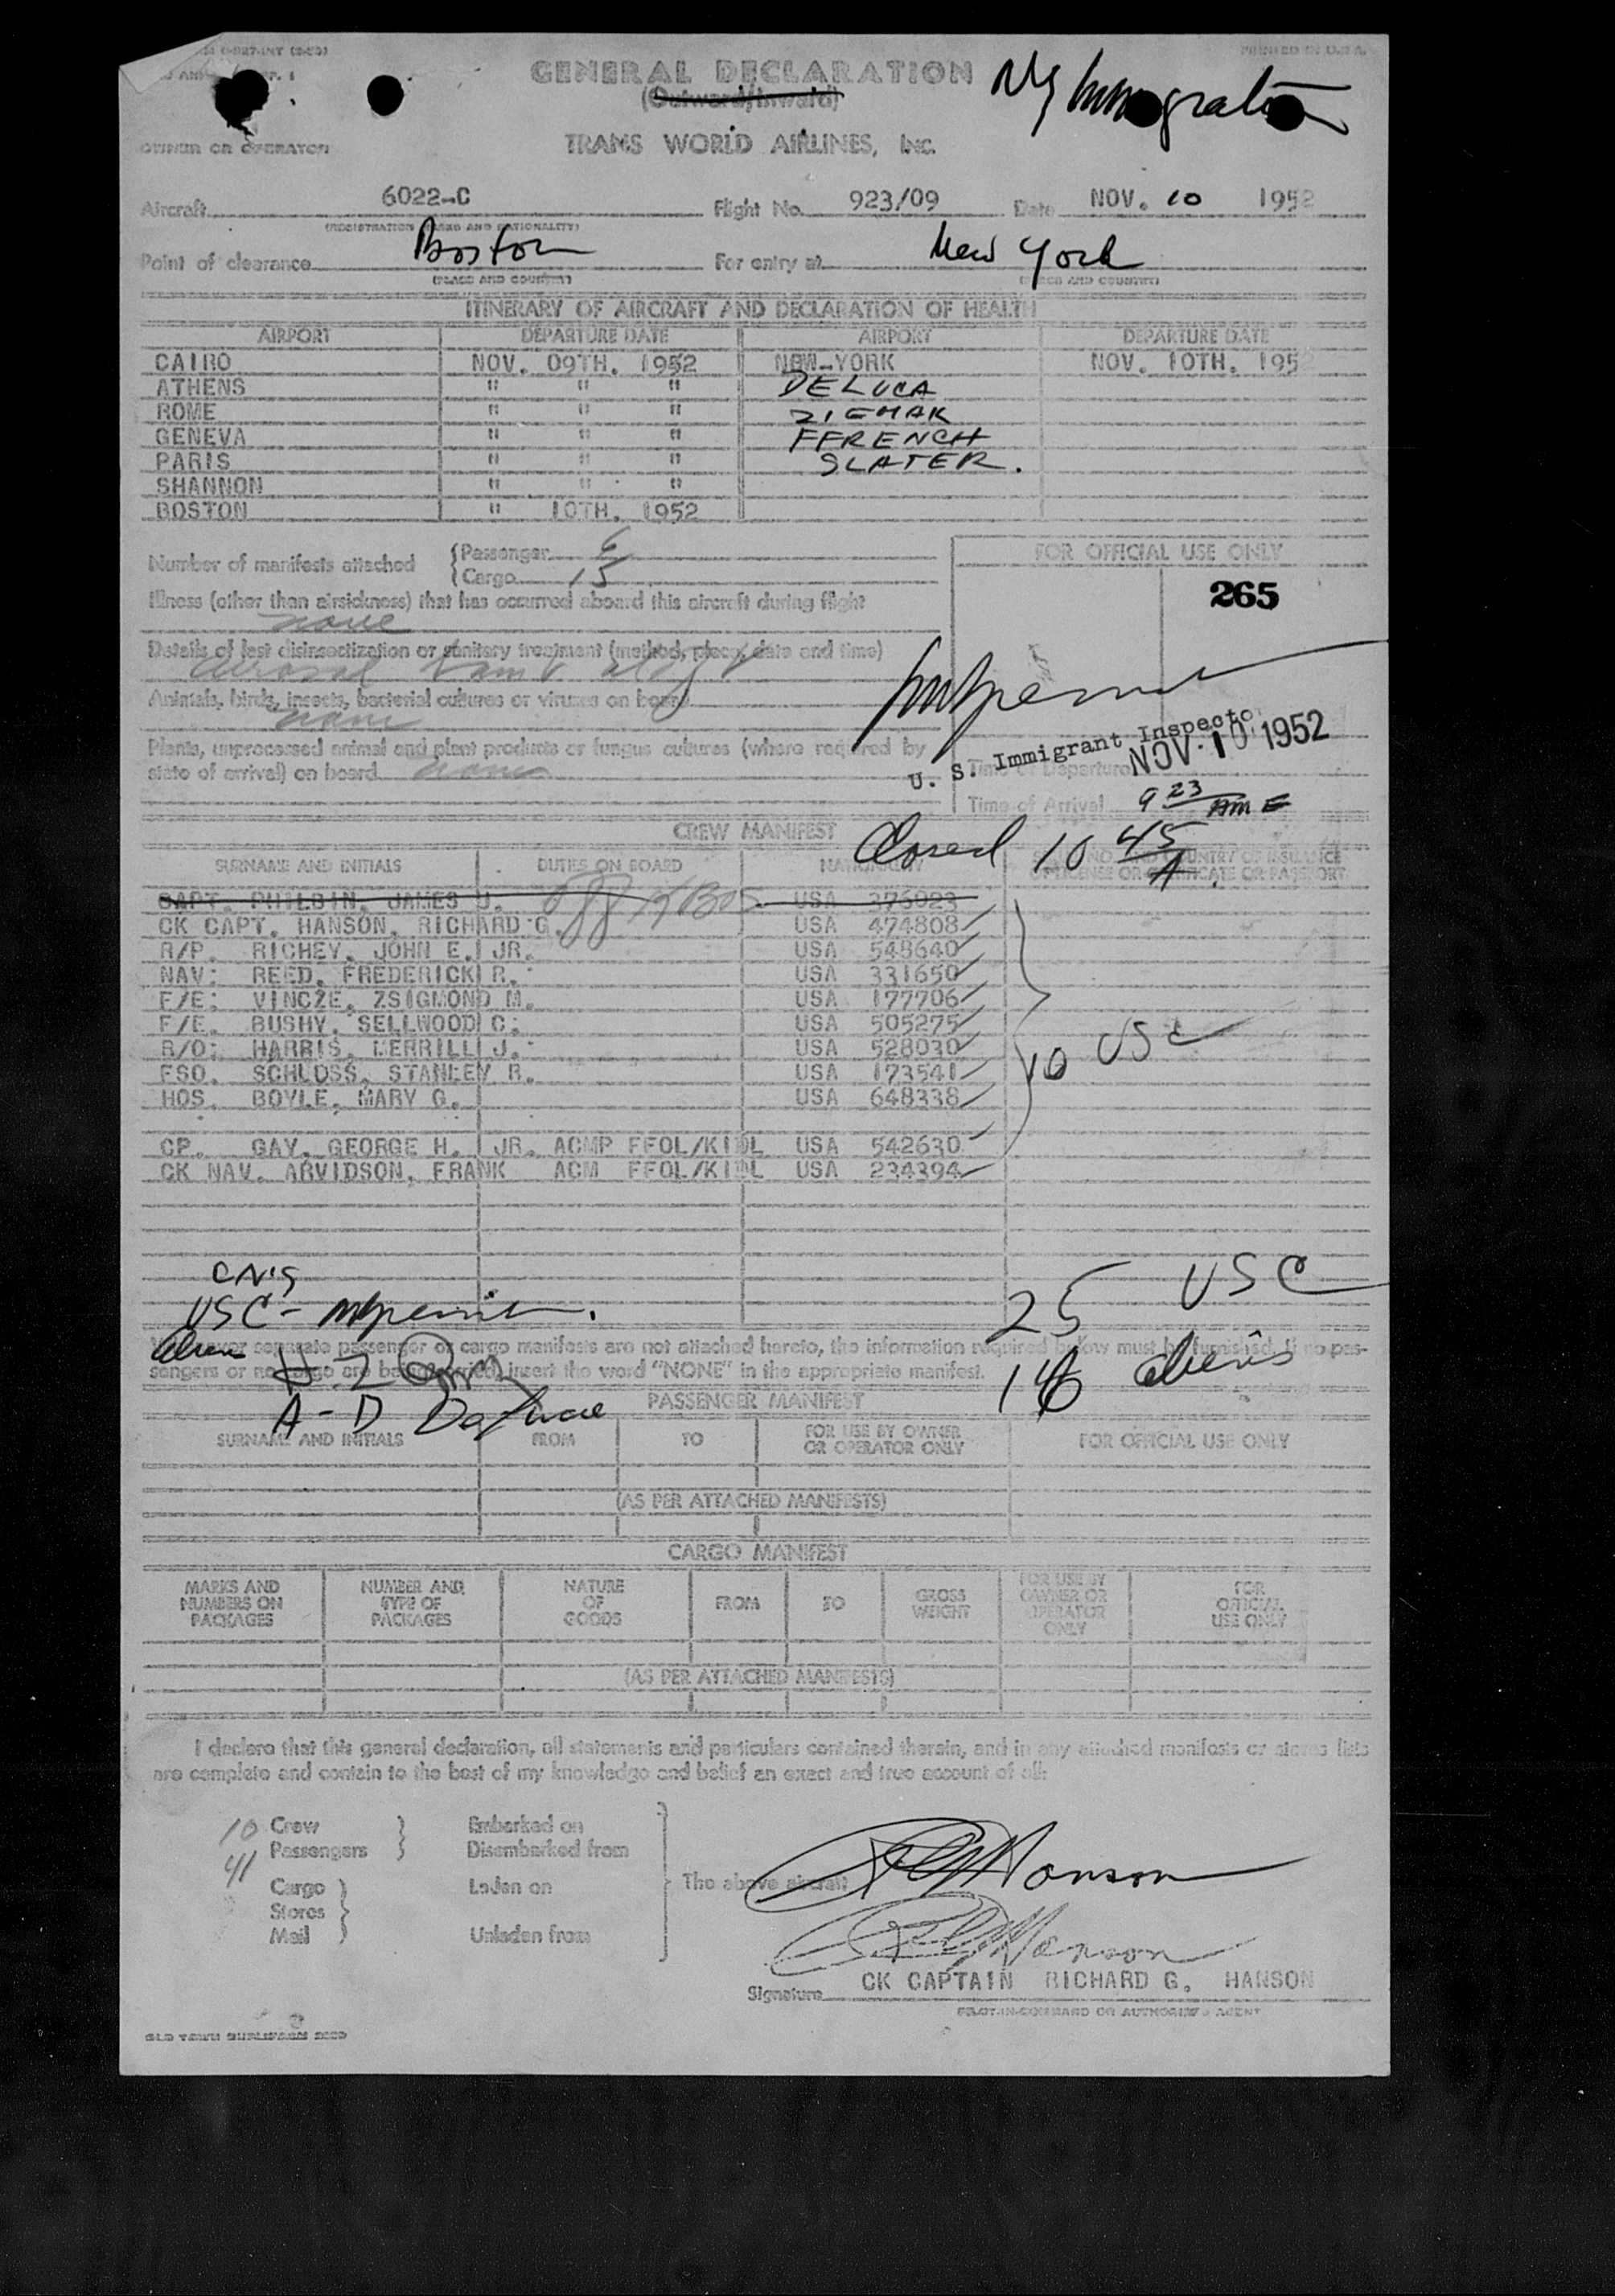 PRINTED IN U.S.A.
GENERAL DECLARATION
(Outward/Inward)
NY Immigration
OWNER OR OPERATOR
TRANS WORLD AIRLINES, INC.
Aircraft 6022-C Flight No. 923/09 Date NOV. 10 1952
(REGISTRATION MARKS AND NATIONALITY)
Point of clearance Boston For entry at New York
(PLACE AND COUNTRY) (PLACE AND COUNTRY)
ITINERARY OF AIRCRAFT AND DECLARATION OF HEALTH
AIRPORT DEPARTURE DATE AIRPORT DEPARTURE DATE
CAIRO NOV. 09TH. 1952 NEW-YORK NOV. 10TH. 195
ATHENS " " " DELUCA
ROME " " " ZIEMAK
GENEVA " " " FFRENCH
PARIS " " " SLATER.
SHANNON " " "
BOSTON " 10TH. 1952
Number of manifests attached { Passenger 6
{ Cargo 15
FOR OFFICIAL USE ONLY
265
Illness (other than airsickness) that has occurred aboard this aircraft during flight
none
Details of last disinsectization or sanitary treatment (method, place, date and time)
aerosol
Animals, birds, insects, bacterial cultures or viruses on board
none
Plants, unprocessed animal and plant products or fungus cultures (where required by
state of arrival) on board none
U. S. Immigrant Inspector
NOV. 10 1952
Time of Departure
Time of Arrival 9 23 AM E
CREW MANIFEST
Closed 10 45 A
SURNAME AND INITIALS DUTIES ON BOARD NATIONALITY
CAPT. PHILBIN, JAMES J. off BOS. USA 376023
CK CAPT. HANSON, RICHARD G. USA 474808
R/P. RICHEY, JOHN E. JR. USA 548640
NAV: REED, FREDERICK R. USA 331650
F/E: VINCZE, ZSIGMOND M. USA 177706
F/E. BUSHY, SELLWOOD C. USA 505275
R/O: HARRIS, MERRILL J. USA 528030
FSO. SCHLOSS, STANLEY R. USA 173541
HOS. BOYLE, MARY G. USA 648338
10 USC
CP. GAY, GEORGE H. JR. ACMP FFOL/KIDL USA 542630
CK NAV. ARVIDSON, FRANK ACM FFOL/KIDL USA 234394
CN'S
USC -
25 USC
Whenever separate passenger or cargo manifests are not attached hereto, the information required below must be furnished. If no pas-
sengers or no cargo are being carried, insert the word "NONE" in the appropriate manifest.
16 aliens
A-D
PASSENGER MANIFEST
SURNAME AND INITIALS FROM TO FOR USE BY OWNER OR OPERATOR ONLY FOR OFFICIAL USE ONLY
(AS PER ATTACHED MANIFESTS)
CARGO MANIFEST
MARKS AND NUMBERS ON PACKAGES NUMBER AND TYPE OF PACKAGES NATURE OF GOODS FROM TO GROSS WEIGHT FOR USE BY OWNER OR OPERATOR ONLY FOR OFFICIAL USE ONLY
(AS PER ATTACHED MANIFESTS)
I declare that this general declaration, all statements and particulars contained therein, and in any attached manifests or stores lists
are complete and contain to the best of my knowledge and belief an exact and true account of all:
10 Crew Embarked on
41 Passengers Disembarked from
Cargo Laden on
The above aircraft R G Hanson
Stores
Mail Unladen from
R G Hanson
Signature CK CAPTAIN RICHARD G. HANSON
PILOT-IN-COMMAND OR AUTHORIZED AGENT